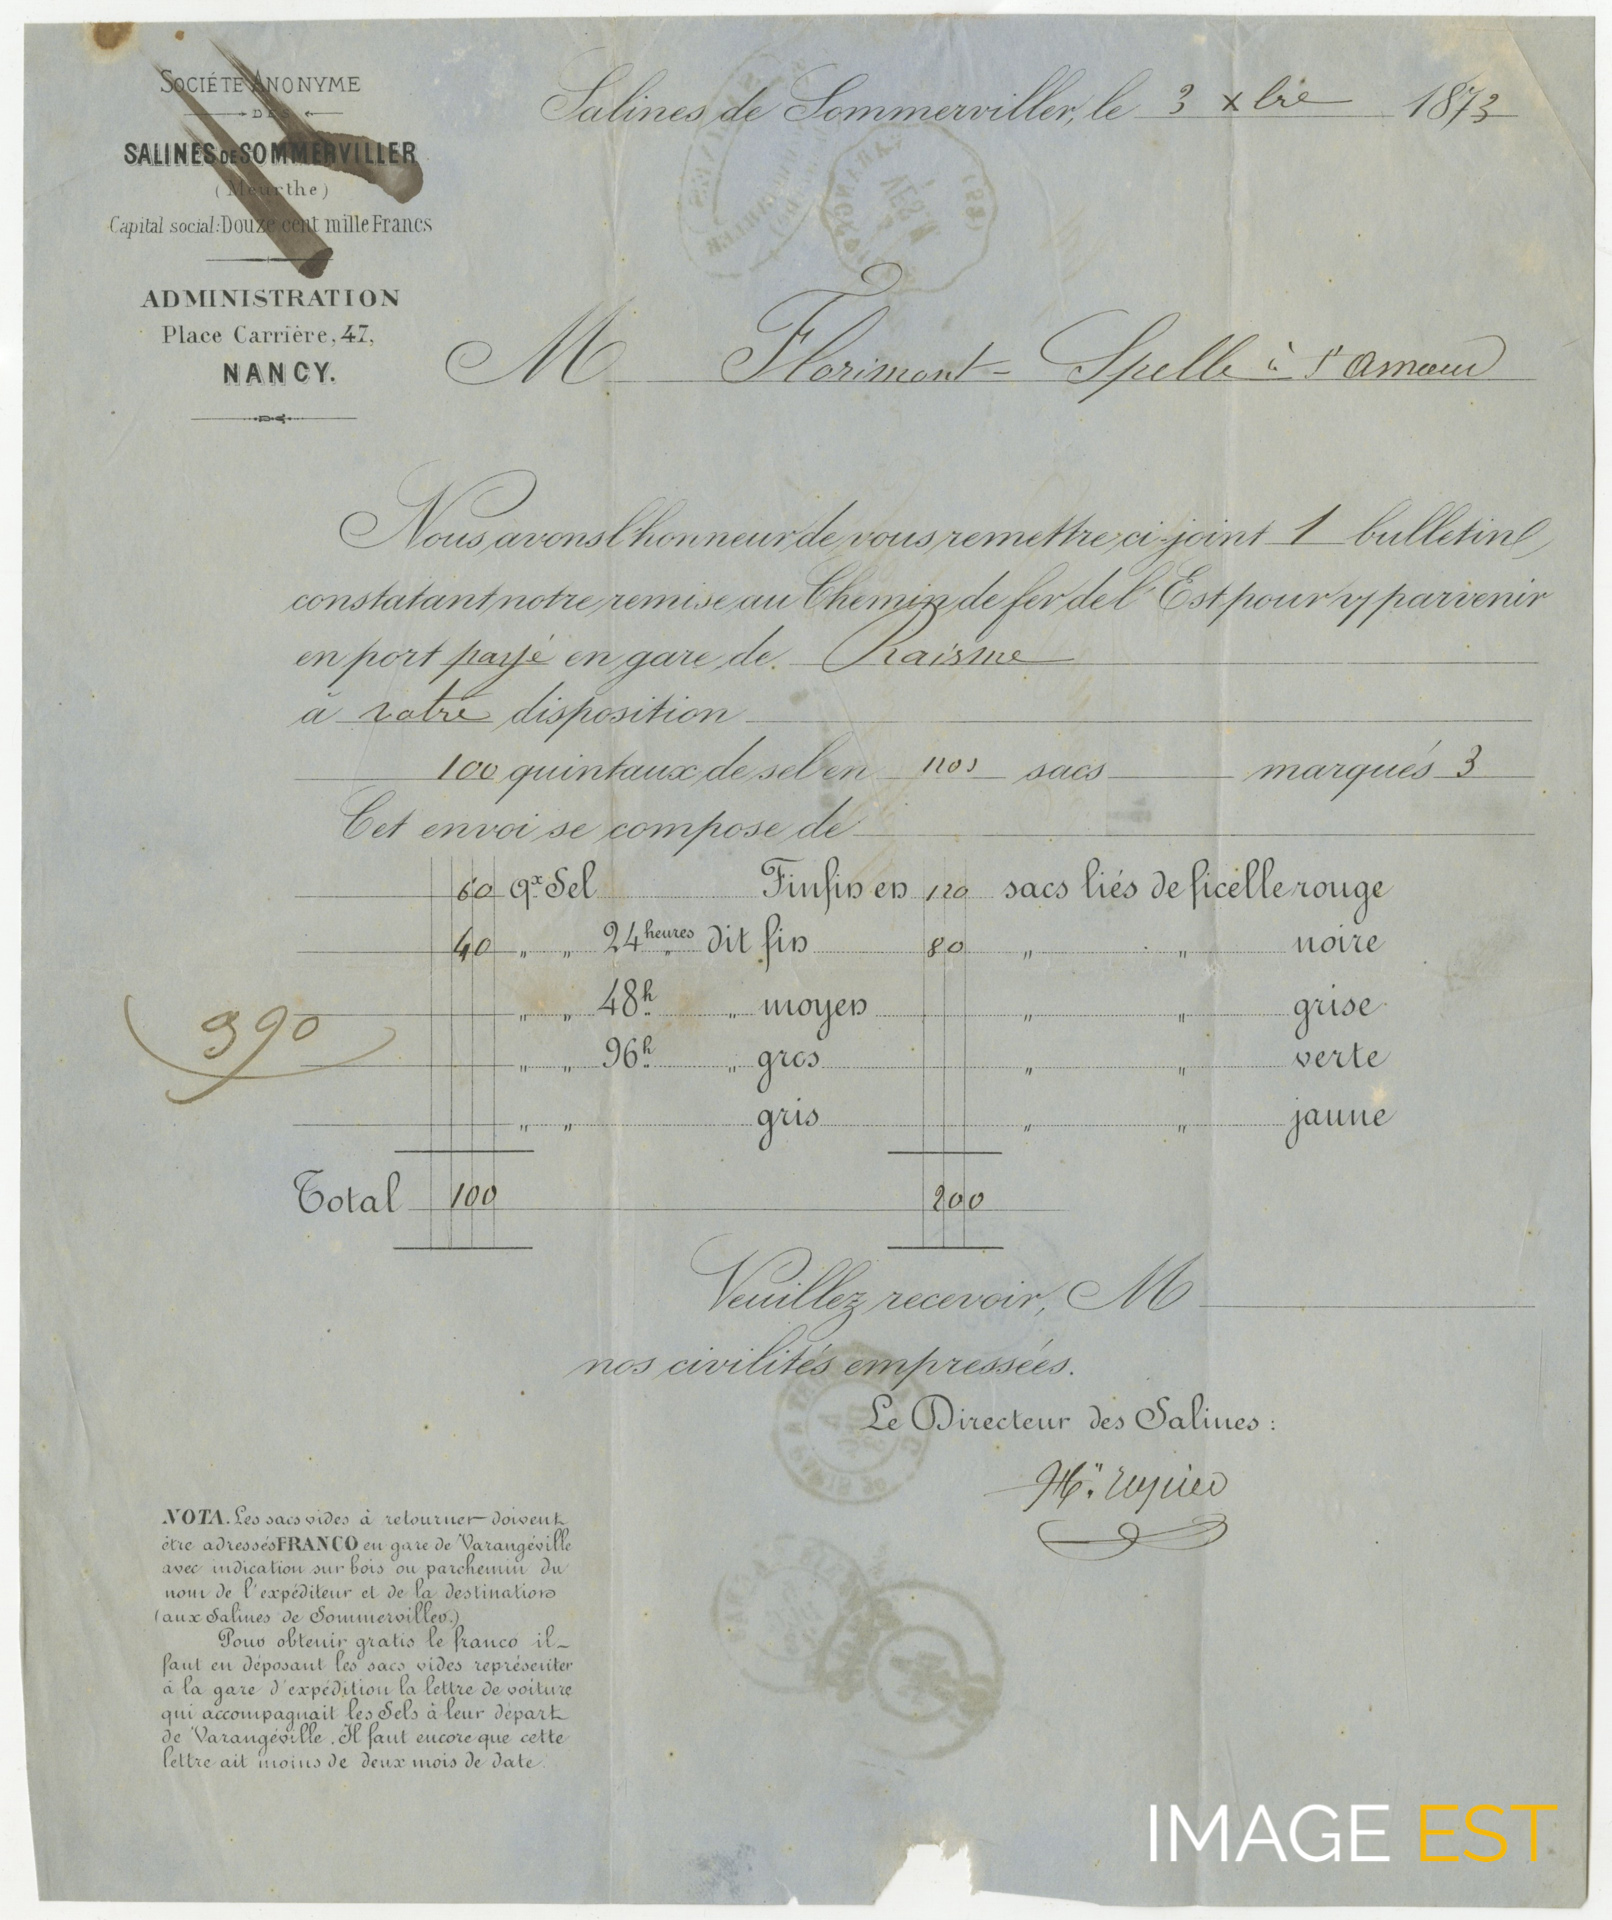 SOCIÉTÉ ANONYME
DES
SALINES DE SOMMERVILLER
(Meurthe)
Capital social: Douze cent mille Francs
ADMINISTRATION
Place Carrière, 47,
NANCY.
Salines de Sommerviller, le 3 xbre 1873
M Florimont-Spelle à St Amand
Nous avons l'honneur de vous remettre ci-joint 1 bulletin
constatant notre remise au Chemin de fer de l'Est pour y parvenir
en port payé en gare de Raisme
à votre disposition
100 quintaux de sel en nos sacs marqués 3
Cet envoi se compose de
60 qx Sel Finfin en 120 sacs liés de ficelle rouge
40 " " 24 heures dit fin 80 " " noire
" " 48h " moyen " " grise
" " 96h " gros " " verte
" " gris " " jaune
390
Total 100 200
Veuillez recevoir, M
nos civilités empressées.
Le Directeur des Salines:
NOTA. Les sacs vides à retourner doivent
être adressés FRANCO en gare de Varangéville
avec indication sur bois ou parchemin du
nom de l'expéditeur et de la destination
(aux Salines de Sommerviller.)
Pour obtenir gratis le franco il
faut en déposant les sacs vides représenter
à la gare d'expédition la lettre de voiture
qui accompagnait les Sels à leur départ
de Varangéville. Il faut encore que cette
lettre ait moins de deux mois de date.
IMAGE EST